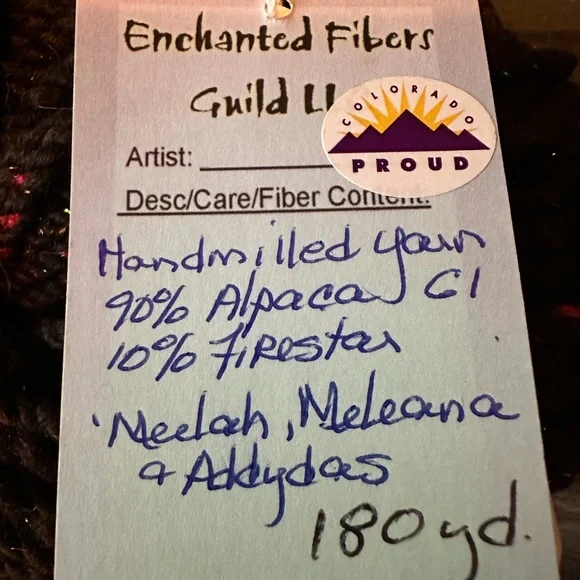 Enchanted Fibers
Guild LL
COLORADO
PROUD
Artist:
Desc/Care/Fiber Content:
Handmilled yarn
90% Alpaca G1
10% Firestar
Meelah, Meleana
& Addydas
180 yd.